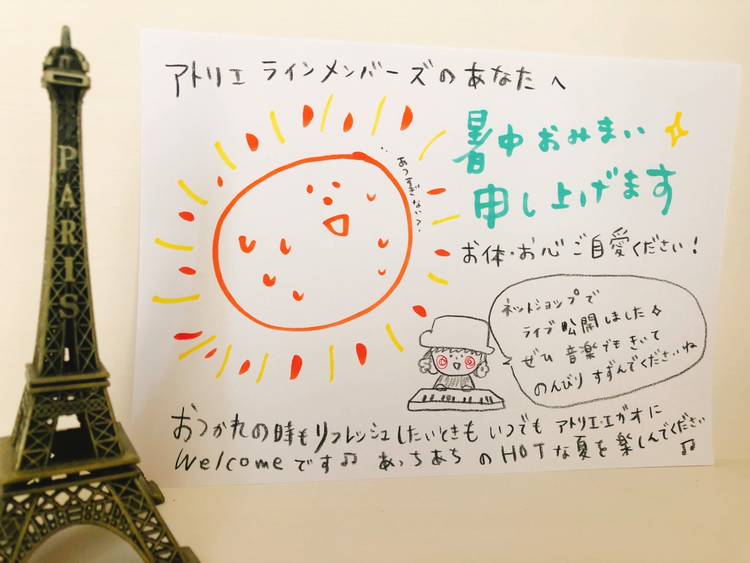 アトリエ ラインメンバーズのあなたへ
暑中おみまい
申し上げます
あつすぎない?
お体・お心ご自愛ください!
ネットショップで
ライブ公開しました
ぜひ 音楽でもきいて
のんびり すずんでくださいね
おつかれの時もリフレッシュしたいときも いつでも アトリエ・エガオに
Welcomeです♫ あっちあち のHOTな夏を楽しんでください♫
PARIS